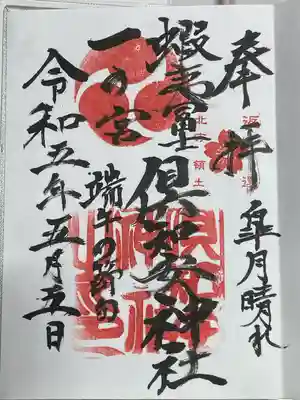 奉拝
皐月晴れ
蝦夷冨士
倶知安神社
一の宮
端午の節句
令和五年五月五日
北方領土